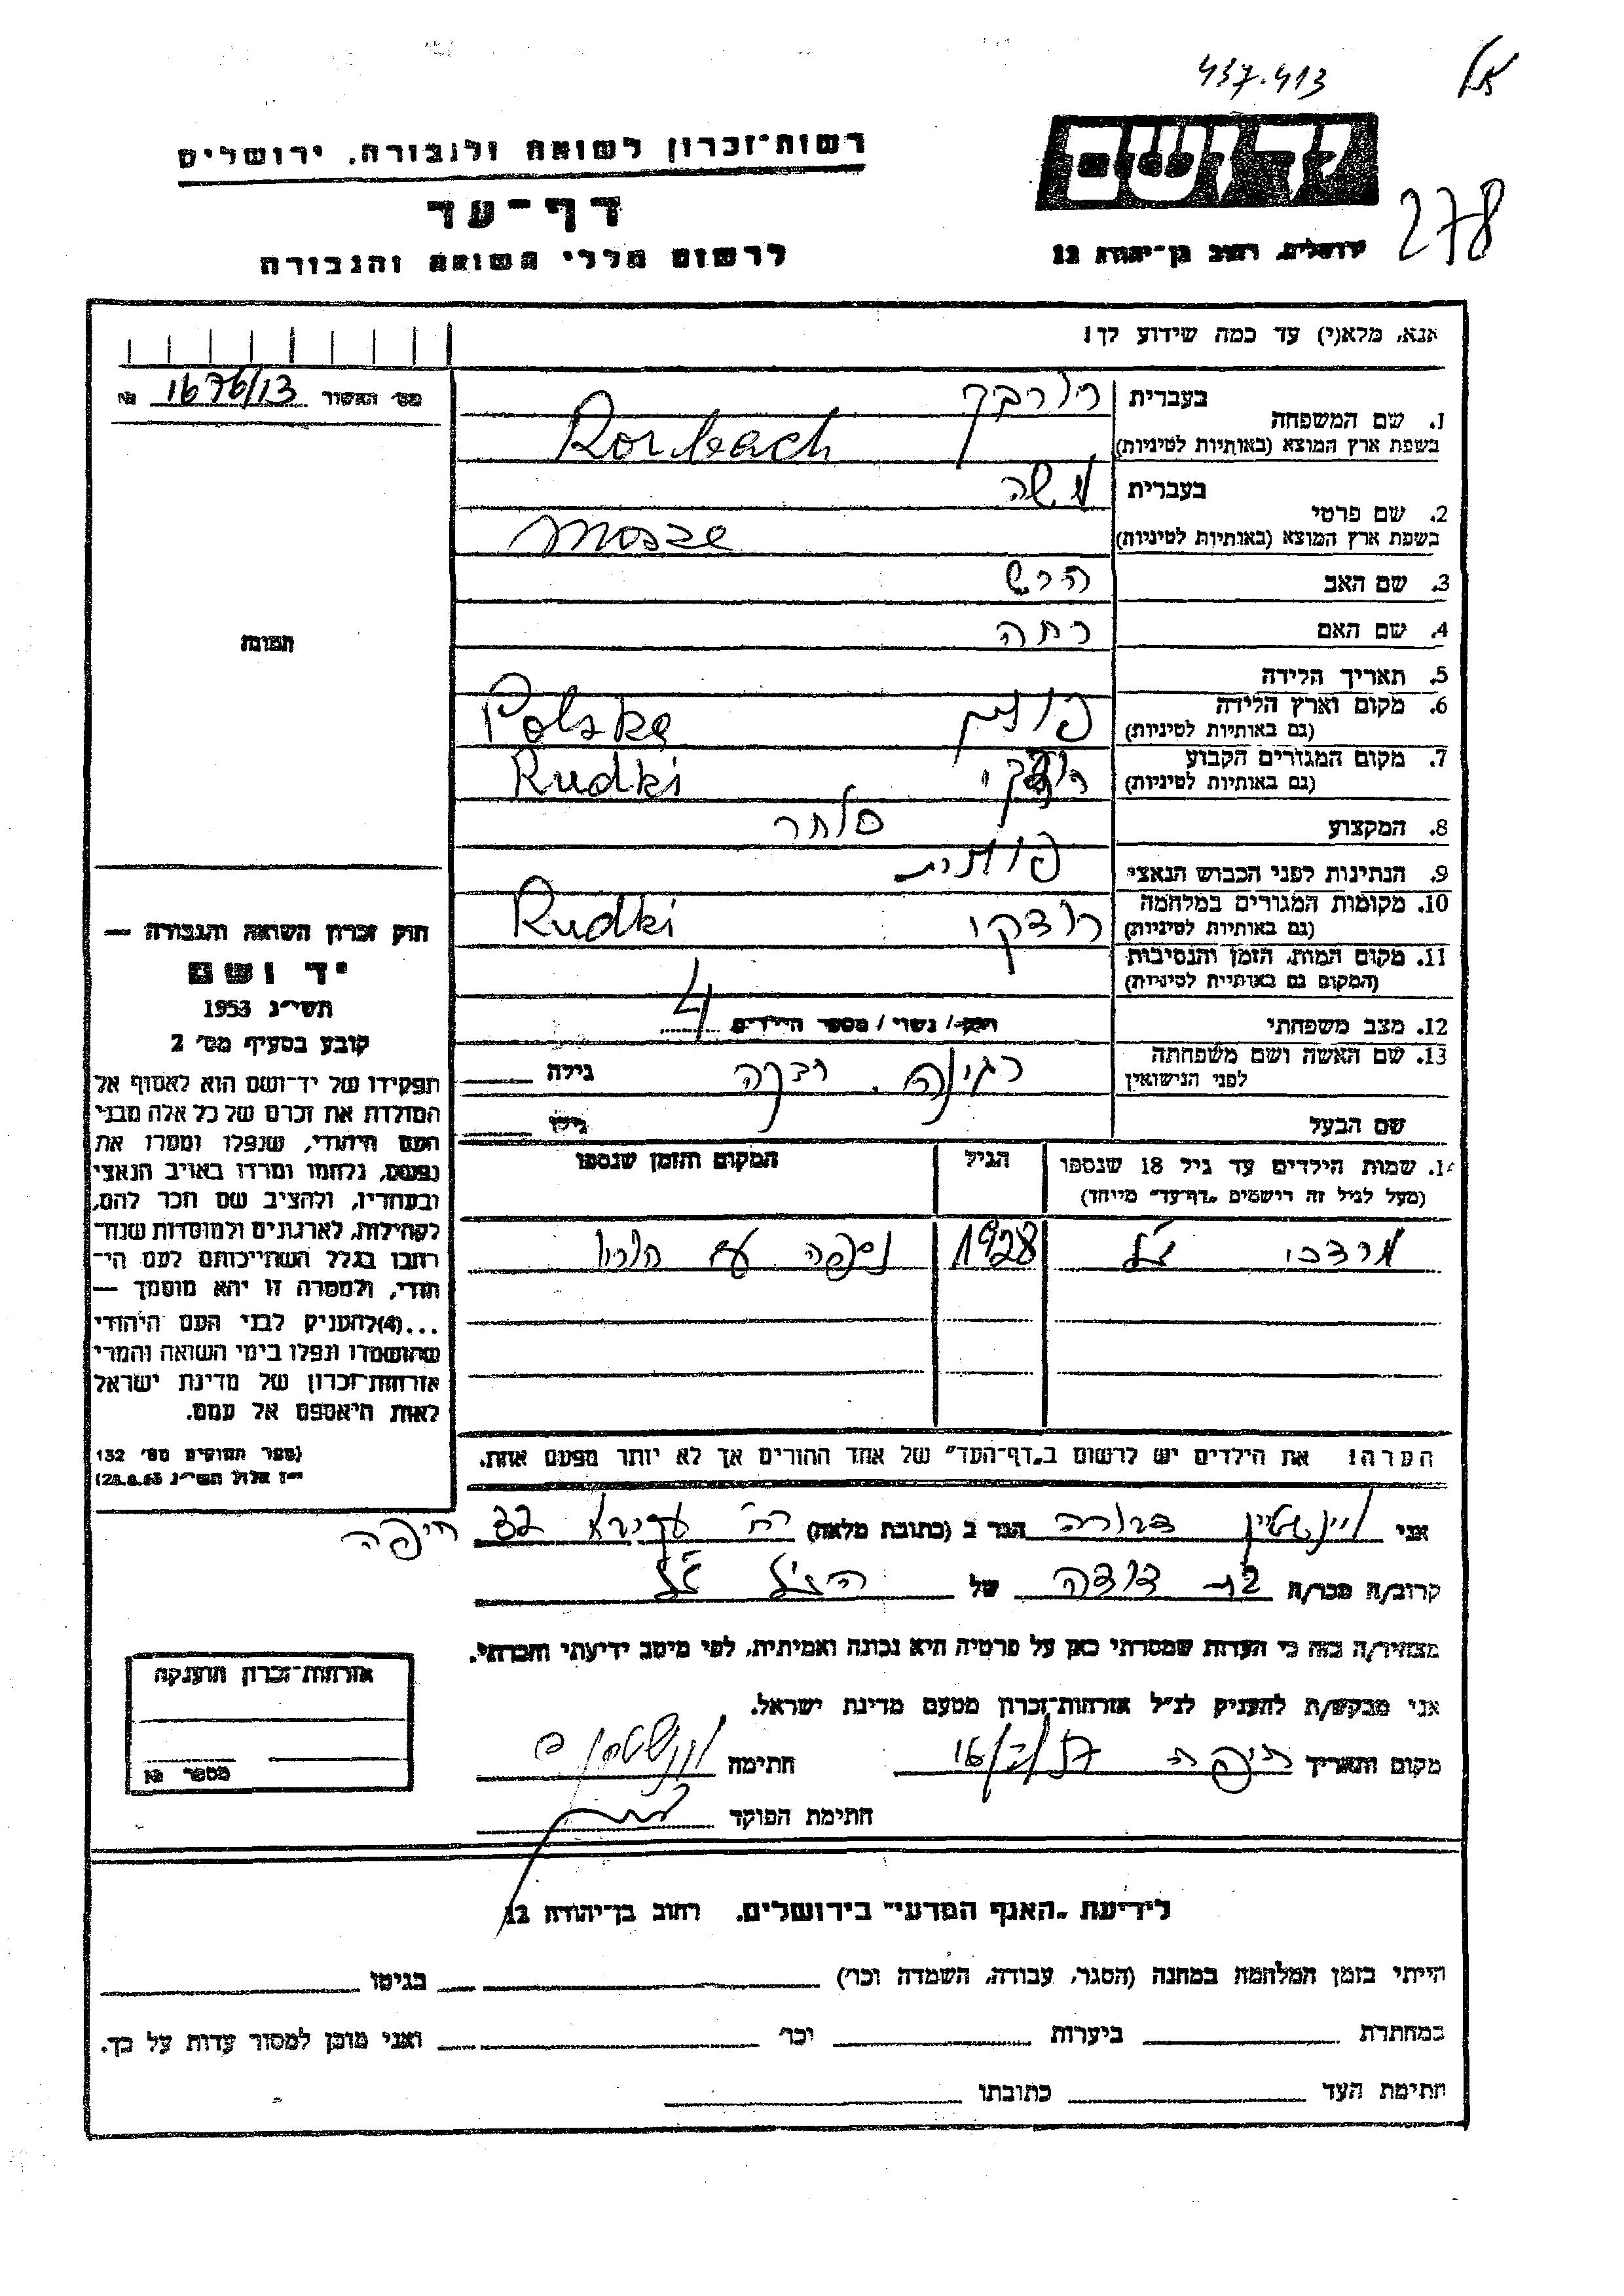 437.413
רשות־זכרון לשואה ולגבורה, ירושלים
יד ושם
278
דף־עד
ירושלים, רחוב בן־יהודה 12
לרשום חללי השואה והגבורה
אנא, מלא(י) עד כמה שידוע לך!
מס׳ האשור 1676/13 №
1. שם המשפחה
בעברית רורבך
בשפת ארץ המוצא (באותיות לטיניות) Rorbach
2. שם פרטי
בעברית משה
בשפת ארץ המוצא (באותיות לטיניות) Mosze
3. שם האב הרש
4. שם האם
תמונה
5. תאריך הלידה
6. מקום וארץ הלידה
(גם באותיות לטיניות) פולין Polska
7. מקום המגורים הקבוע
(גם באותיות לטיניות) רודקי Rudki
8. המקצוע סוחר
9. הנתינות לפני הכבוש הנאצי פולנית
10. מקומות המגורים במלחמה
(גם באותיות לטיניות) רודקי Rudki
11. מקום המות, הזמן והנסיבות
(המקום גם באותיות לטיניות)
12. מצב משפחתי רווק / נשוי / מספר הילדים 4
13. שם האשה ושם משפחתה
לפני הנישואין רגינה גילה
שם הבעל גילו
14. שמות הילדים עד גיל 18 שנספו
(מעל לגיל זה רושמים „דף־עד״ מיוחד)
הגיל
המקום והזמן שנספו
מרדכי ז״ל 1928 נספה עם הוריו
הערה: את הילדים יש לרשום ב„דף־העד״ של אחד ההורים אך לא יותר מפעם אחת.
חוק זכרון השואה והגבורה —
יד ושם
תשי״ג 1953
קובע בסעיף מס׳ 2
תפקידו של יד־ושם הוא לאסוף אל
המולדת את זכרם של כל אלה מבני
העם היהודי, שנפלו ומסרו את
נפשם, נלחמו ומרדו באויב הנאצי
ובעוזריו, ולהציב שם וזכר להם,
לקהילות, לארגונים ולמוסדות שנח־
רבו בגלל השתייכותם לעם הי־
הודי, ולמטרה זו יהא מוסמך —
...(4)להעניק לבני העם היהודי
שהושמדו ונפלו בימי השואה והמרי
אזרחות־זכרון של מדינת ישראל
לאות היאספם אל עמם.
(ספר החוקים מס׳ 132
י״ז אלול תשי״ג 28.8.53)
אני וינשטיין דבורה הגר ב (כתובת מלאה) רח׳ 32 חיפה
קרוב/ה מכר/ה בת דודה של הנ״ל ז״ל
מצהיר/ה בזה כי העדות שמסרתי כאן על פרטיה היא נכונה ואמיתית, לפי מיטב ידיעתי והכרתי.
אני מבקש/ת להעניק לנ״ל אזרחות־זכרון מטעם מדינת ישראל.
מקום ותאריך חיפה חתימה
חתימת הפוקד
אזרחות־זכרון הוענקה
מספר №
לידיעת „האגף המדעי״ בירושלים. רחוב בן־יהודה 12
הייתי בזמן המלחמה במחנה (הסגר, עבודה, השמדה וכו׳) בגיטו
במחתרת ביערות וכו׳ ואני מוכן למסור עדות על כך.
חתימת העד כתובתו